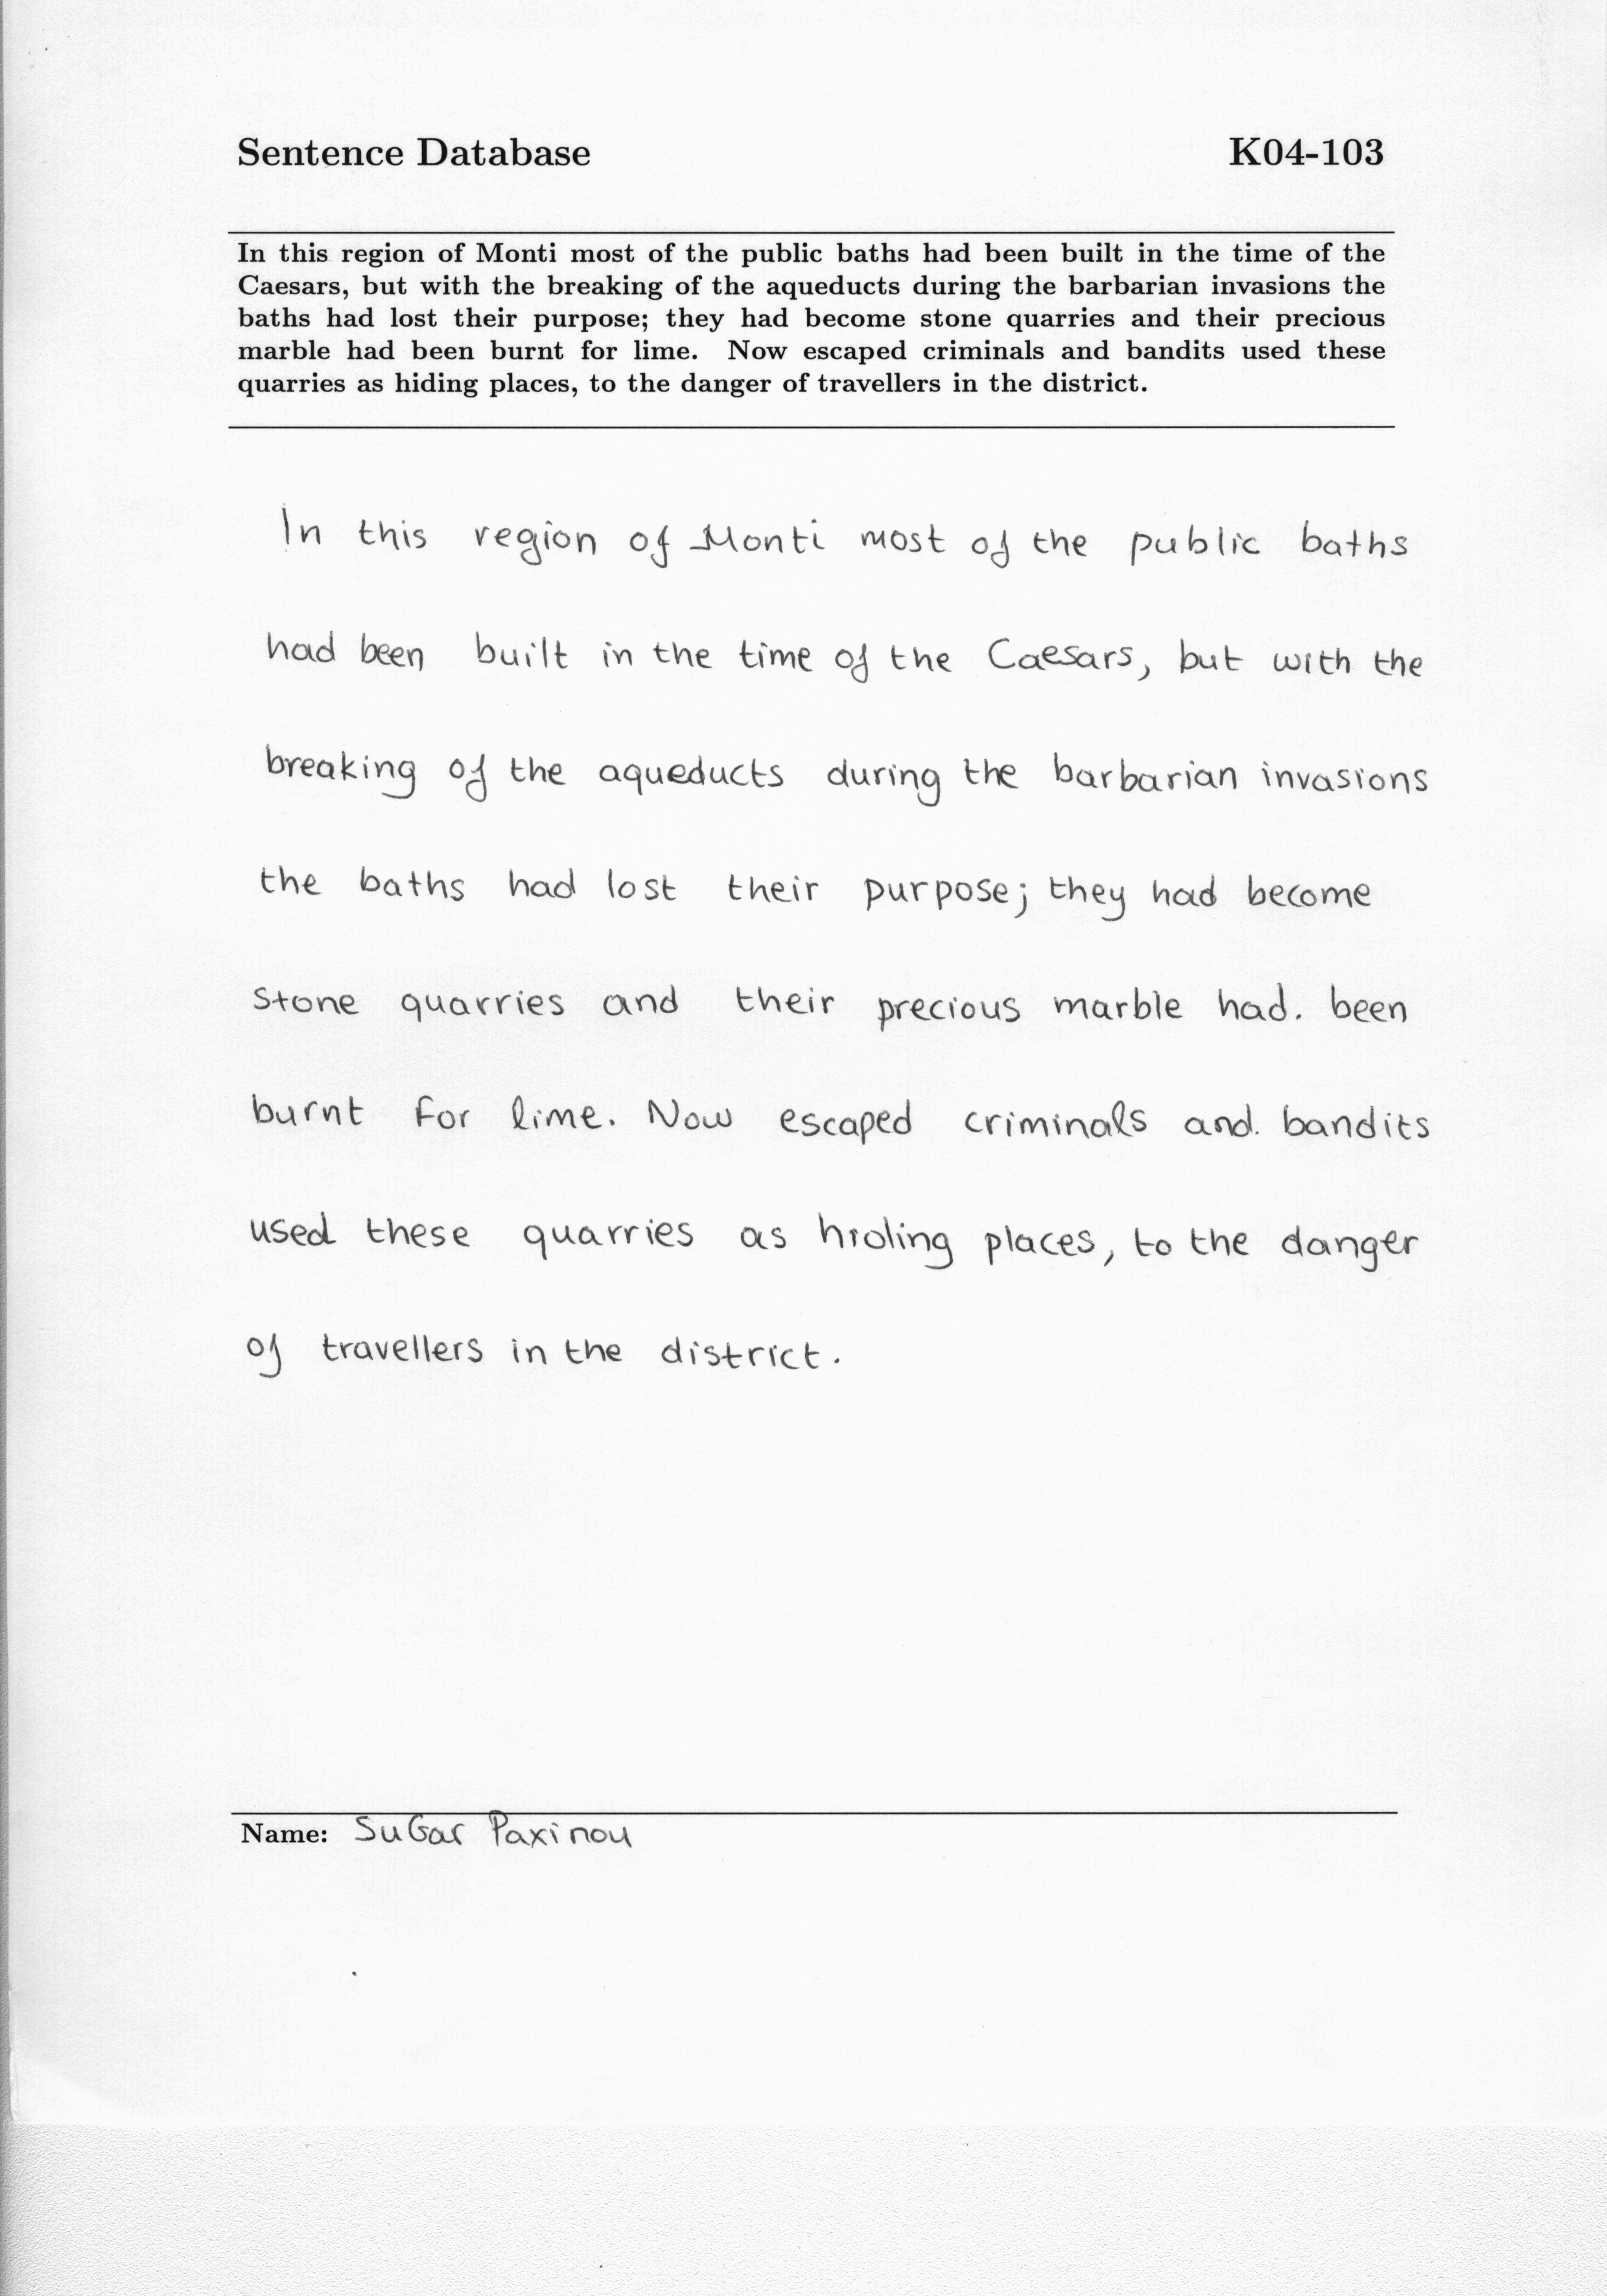 Sentence Database K04-103
In this region of Monti most of the public baths had been built in the time of the
Caesars, but with the breaking of the aqueducts during the barbarian invasions the
baths had lost their purpose; they had become stone quarries and their precious
marble had been burnt for lime. Now escaped criminals and bandits used these
quarries as hiding places, to the danger of travellers in the district.
In this region of Monti most of the public baths
had been built in the time of the Caesars, but with the
breaking of the aqueducts during the barbarian invasions
the baths had lost their purpose; they had become
stone quarries and their precious marble had. been
burnt for lime. Now escaped criminals and. bandits
used these quarries as hiding places, to the danger
of travellers in the district.
Name: SuGar Paxinou